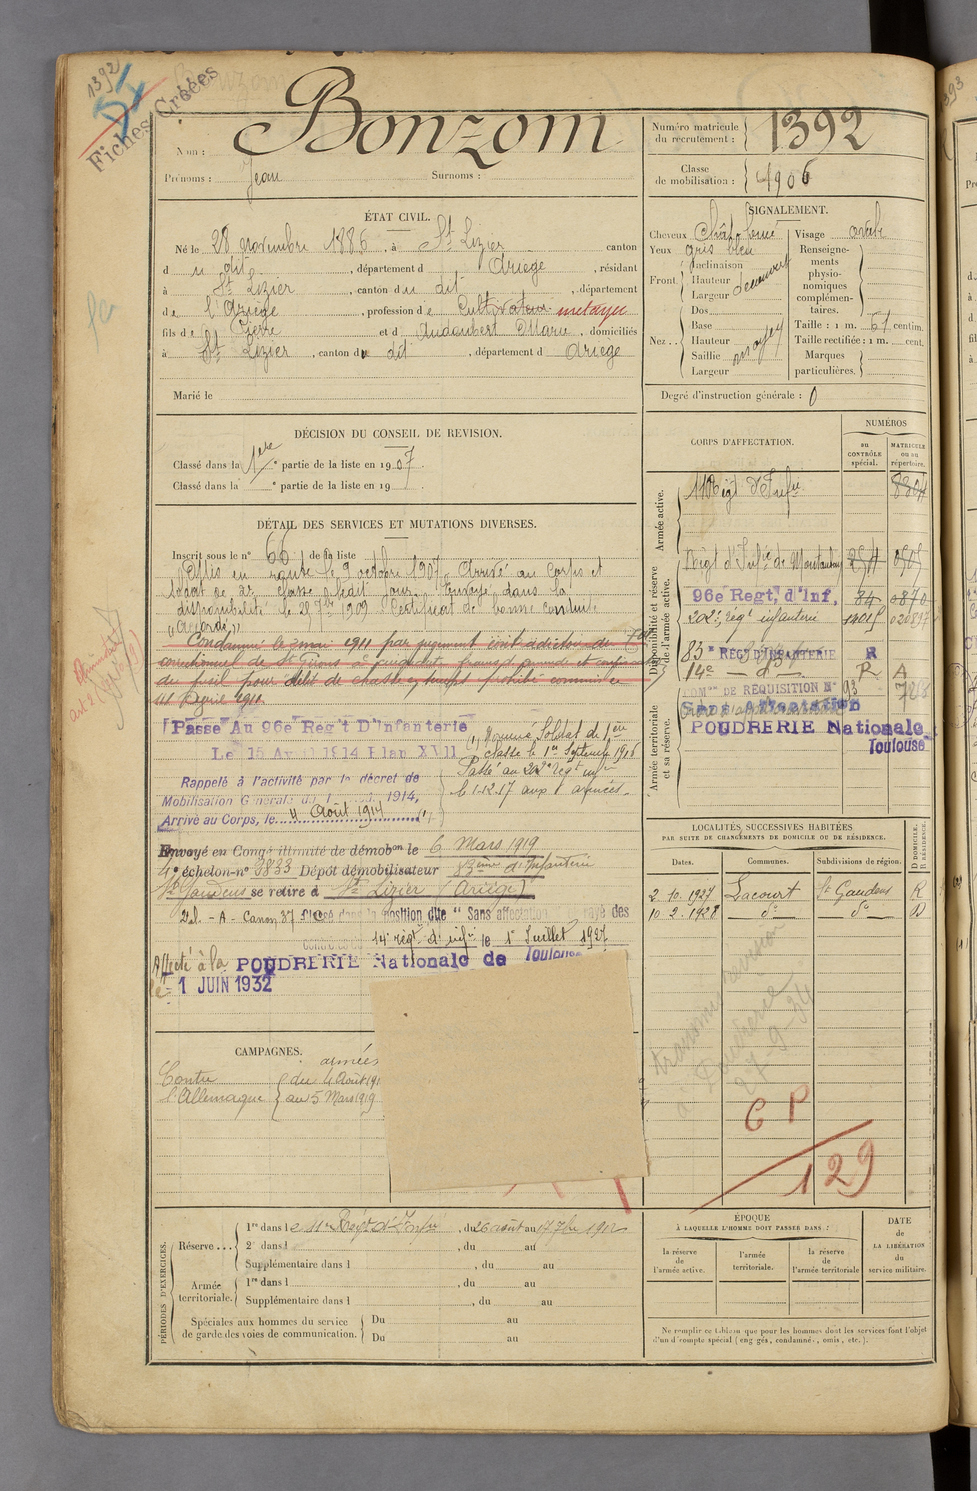 1392
Fiches Créées
Nom : Bonzom
Prénoms : Jean Surnoms :
Numéro matricule du recrutement : 1392
Classe de mobilisation : 1906
ÉTAT CIVIL.
Né le 28 novembre 1886, à St Lizier canton
du dit, département d Ariège, résidant
à St Lizier, canton du dit, département
de l'Ariège, profession de Cultivateur métayer
fils de Pierre et d Audoubert Marie, domiciliés
à St Lizier, canton du dit, département d Ariège
Marié le
SIGNALEMENT.
Cheveux Chât. foncé
Yeux gris bleu
Front Inclinaison
Hauteur découvert
Largeur
Nez Dos
Base
Hauteur moyen
Saillie
Largeur
Visage ovale
Renseignements physionomiques complémentaires.
Taille : 1 m. 61 centim.
Taille rectifiée : 1 m. cent.
Marques particulières.
Degré d'instruction générale : 0
DÉCISION DU CONSEIL DE REVISION.
Classé dans la 1ère partie de la liste en 1907.
Classé dans la e partie de la liste en 19
DÉTAIL DES SERVICES ET MUTATIONS DIVERSES.
Inscrit sous le n° 66 de la liste
Mis en route le 9 octobre 1907. Arrivé au corps et
soldat de 2e classe ledit jour. Envoyé dans la
disponibilité le 28 7bre 1909 Certificat de bonne conduite
"Accordé"
Condamné le 2 mai 1911 par jugement contradictoire du
correctionnel de St Girons à
du fusil pour délit de chasse en temps prohibé commis le
Avril 1911.
Passé Au 96e Reg't D'Infanterie
Le 15 Avril 1914 Plan XVII
Rappelé à l'activité par le décret de
Mobilisation Générale du 1 Août 1914,
Arrivé au Corps, le 4 Août 1914
Nommé Soldat de 1ère
classe le 1er Septembre 1916
Passé au 202e régt inf
le 1-12-17 aux armées.
Envoyé en Congé illimité de démobon le 6 Mars 1919
4e échelon-n° 3833 Dépôt démobilisateur 83ème d'Infanterie
St Gaudens se retire à St Lizier (Ariège)
Classé dans la position dite "Sans affectation" rayé des
14e régt d'inf le 1er Juillet 1927
Affecté à la POUDRERIE Nationale de Toulouse
le 1 JUIN 1932
CORPS D'AFFECTATION.
NUMÉROS
au CONTRÔLE spécial.
MATRICULE ou au répertoire.
Armée active.
11 Régt d'Infie 8304
Disponibilité et réserve de l'armée active.
Régt d'Infie de Montauban 254 0505
96e Regt, d'Inf, 84 0870
202e régt infanterie
83e RÉGT D'INFANTERIE R
14e — d° — R A
Armée territoriale et sa réserve.
COMon DE RÉQUISITION N° 93
Sans Affectation
POUDRERIE Nationale
Toulouse
LOCALITÉS SUCCESSIVES HABITÉES
PAR SUITE DE CHANGEMENTS DE DOMICILE OU DE RÉSIDENCE.
Dates. Communes. Subdivisions de région. D DOMICILE. R RÉSIDENCE.
2.10.1927 Lacourt St Gaudens R
10.2.1928 d° d° D
27-9-34
CP
129
CAMPAGNES.
Contre l'Allemagne
armées
du 4 Août 191
au 5 Mars 1919
PÉRIODES D'EXERCICES.
Réserve... 1re dans le 11e Régt d'Infie, du 26 août au 17 7bre 1912
2e dans l , du au
Supplémentaire dans l , du au
Armée territoriale. 1re dans l , du au
Supplémentaire dans l , du au
Spéciales aux hommes du service de garde des voies de communication. Du au
Du au
ÉPOQUE
À LAQUELLE L'HOMME DOIT PASSER DANS :
la réserve de l'armée active.
l'armée territoriale.
la réserve de l'armée territoriale
DATE de LA LIBÉRATION du service militaire.
Ne remplir ce tableau que pour les hommes dont les services font l'objet
d'un décompte spécial (engagés, condamnés, omis, etc.).